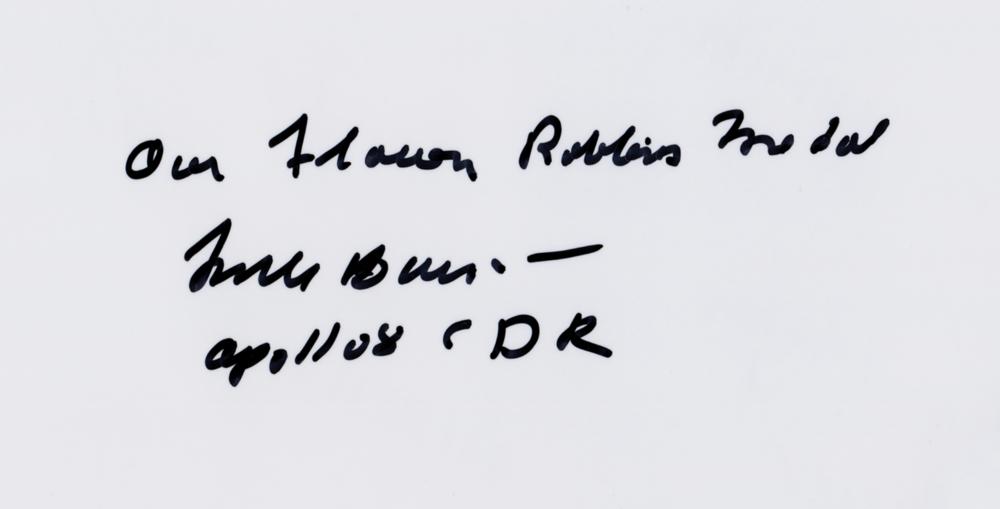 Our Flown Robbins Medal
Frank Borman —
Apollo 8 CDR